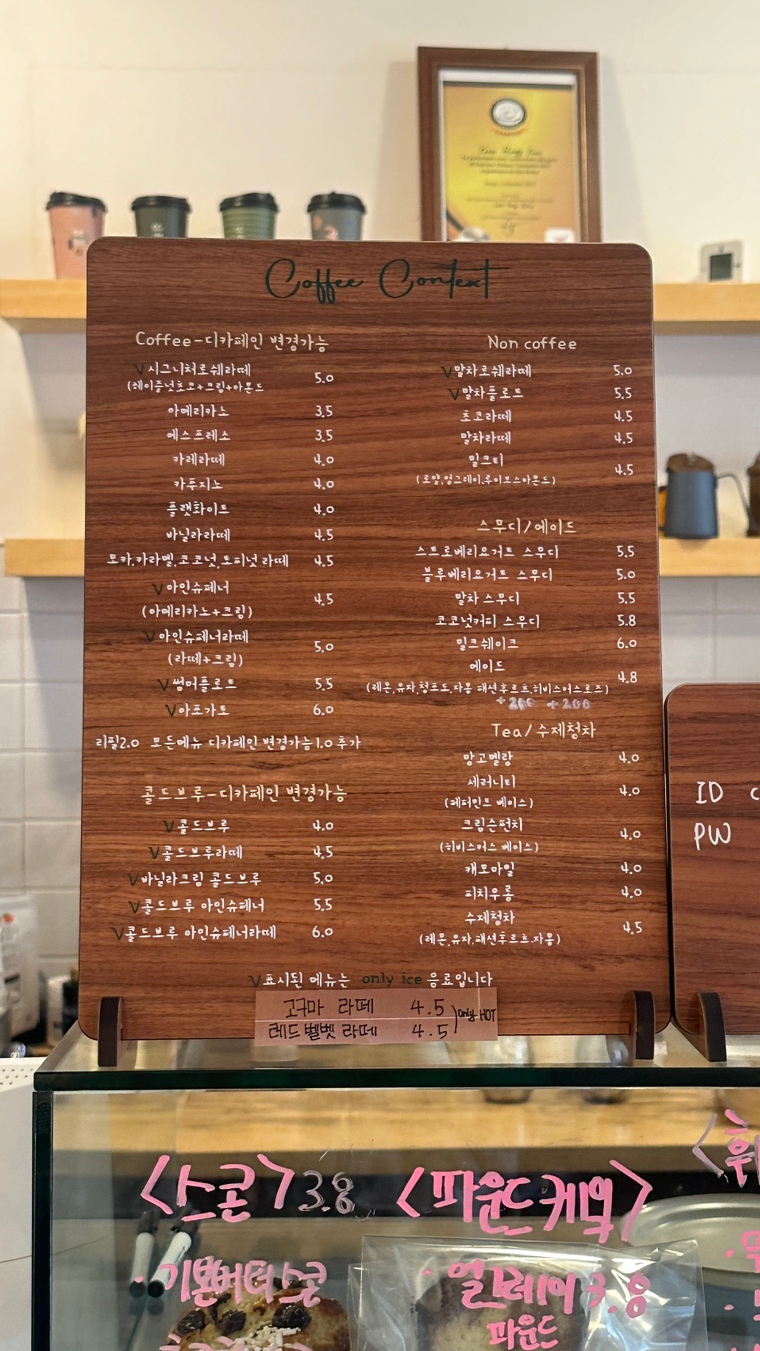 Coffee Context
Coffee-디카페인 변경가능
V시그니처로쉐라떼 5.0
(헤이즐넛초코+크림+아몬드
아메리카노 3.5
에스프레소 3.5
카페라떼 4.0
카푸치노 4.0
플랫화이트 4.0
바닐라라떼 4.5
모카,카라멜,코코넛,토피넛 라떼 4.5
V아인슈페너 4.5
(아메리카노+크림)
V아인슈페너라떼 5.0
(라떼+크림)
V썸머플로트 5.5
V아포가토 6.0
리필2.0 모든메뉴 디카페인 변경가능1.0 추가
콜드브루-디카페인 변경가능
V콜드브루 4.0
V콜드브루라떼 4.5
V바닐라크림 콜드브루 5.0
V콜드브루 아인슈페너 5.5
V콜드브루 아인슈페너라떼 6.0
Non coffee
V말차로쉐라떼 5.0
V말차플로트 5.5
초코라떼 4.5
말차라떼 4.5
밀크티 4.5
(로얄,얼그레이,루이보스아몬드)
스무디/에이드
스트로베리요거트 스무디 5.5
블루베리요거트 스무디 5.0
말차 스무디 5.5
코코넛커피 스무디 5.8
밀크쉐이크 6.0
에이드 4.8
(레몬,유자,청포도,자몽 패션후르츠,히비스커스로즈)
+200 +200
Tea/수제청차
망고멜랑 4.0
세러니티 4.0
(페퍼민트 베이스)
크림슨펀치 4.0
(히비스커스 베이스)
캐모마일 4.0
피치우롱 4.0
수제청차 4.5
(레몬,유자,패션후르츠,자몽)
V표시된 메뉴는 only ice 음료입니다
고구마 라떼 4.5
레드벨벳 라떼 4.5
only HOT
ID
PW
<스콘> 3.8
· 기본버터스콘
<파운드케익>
· 얼그레이 3.8
파운드